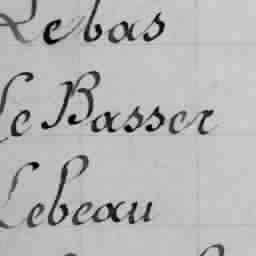 Lebas
Le Basser
Lebeau